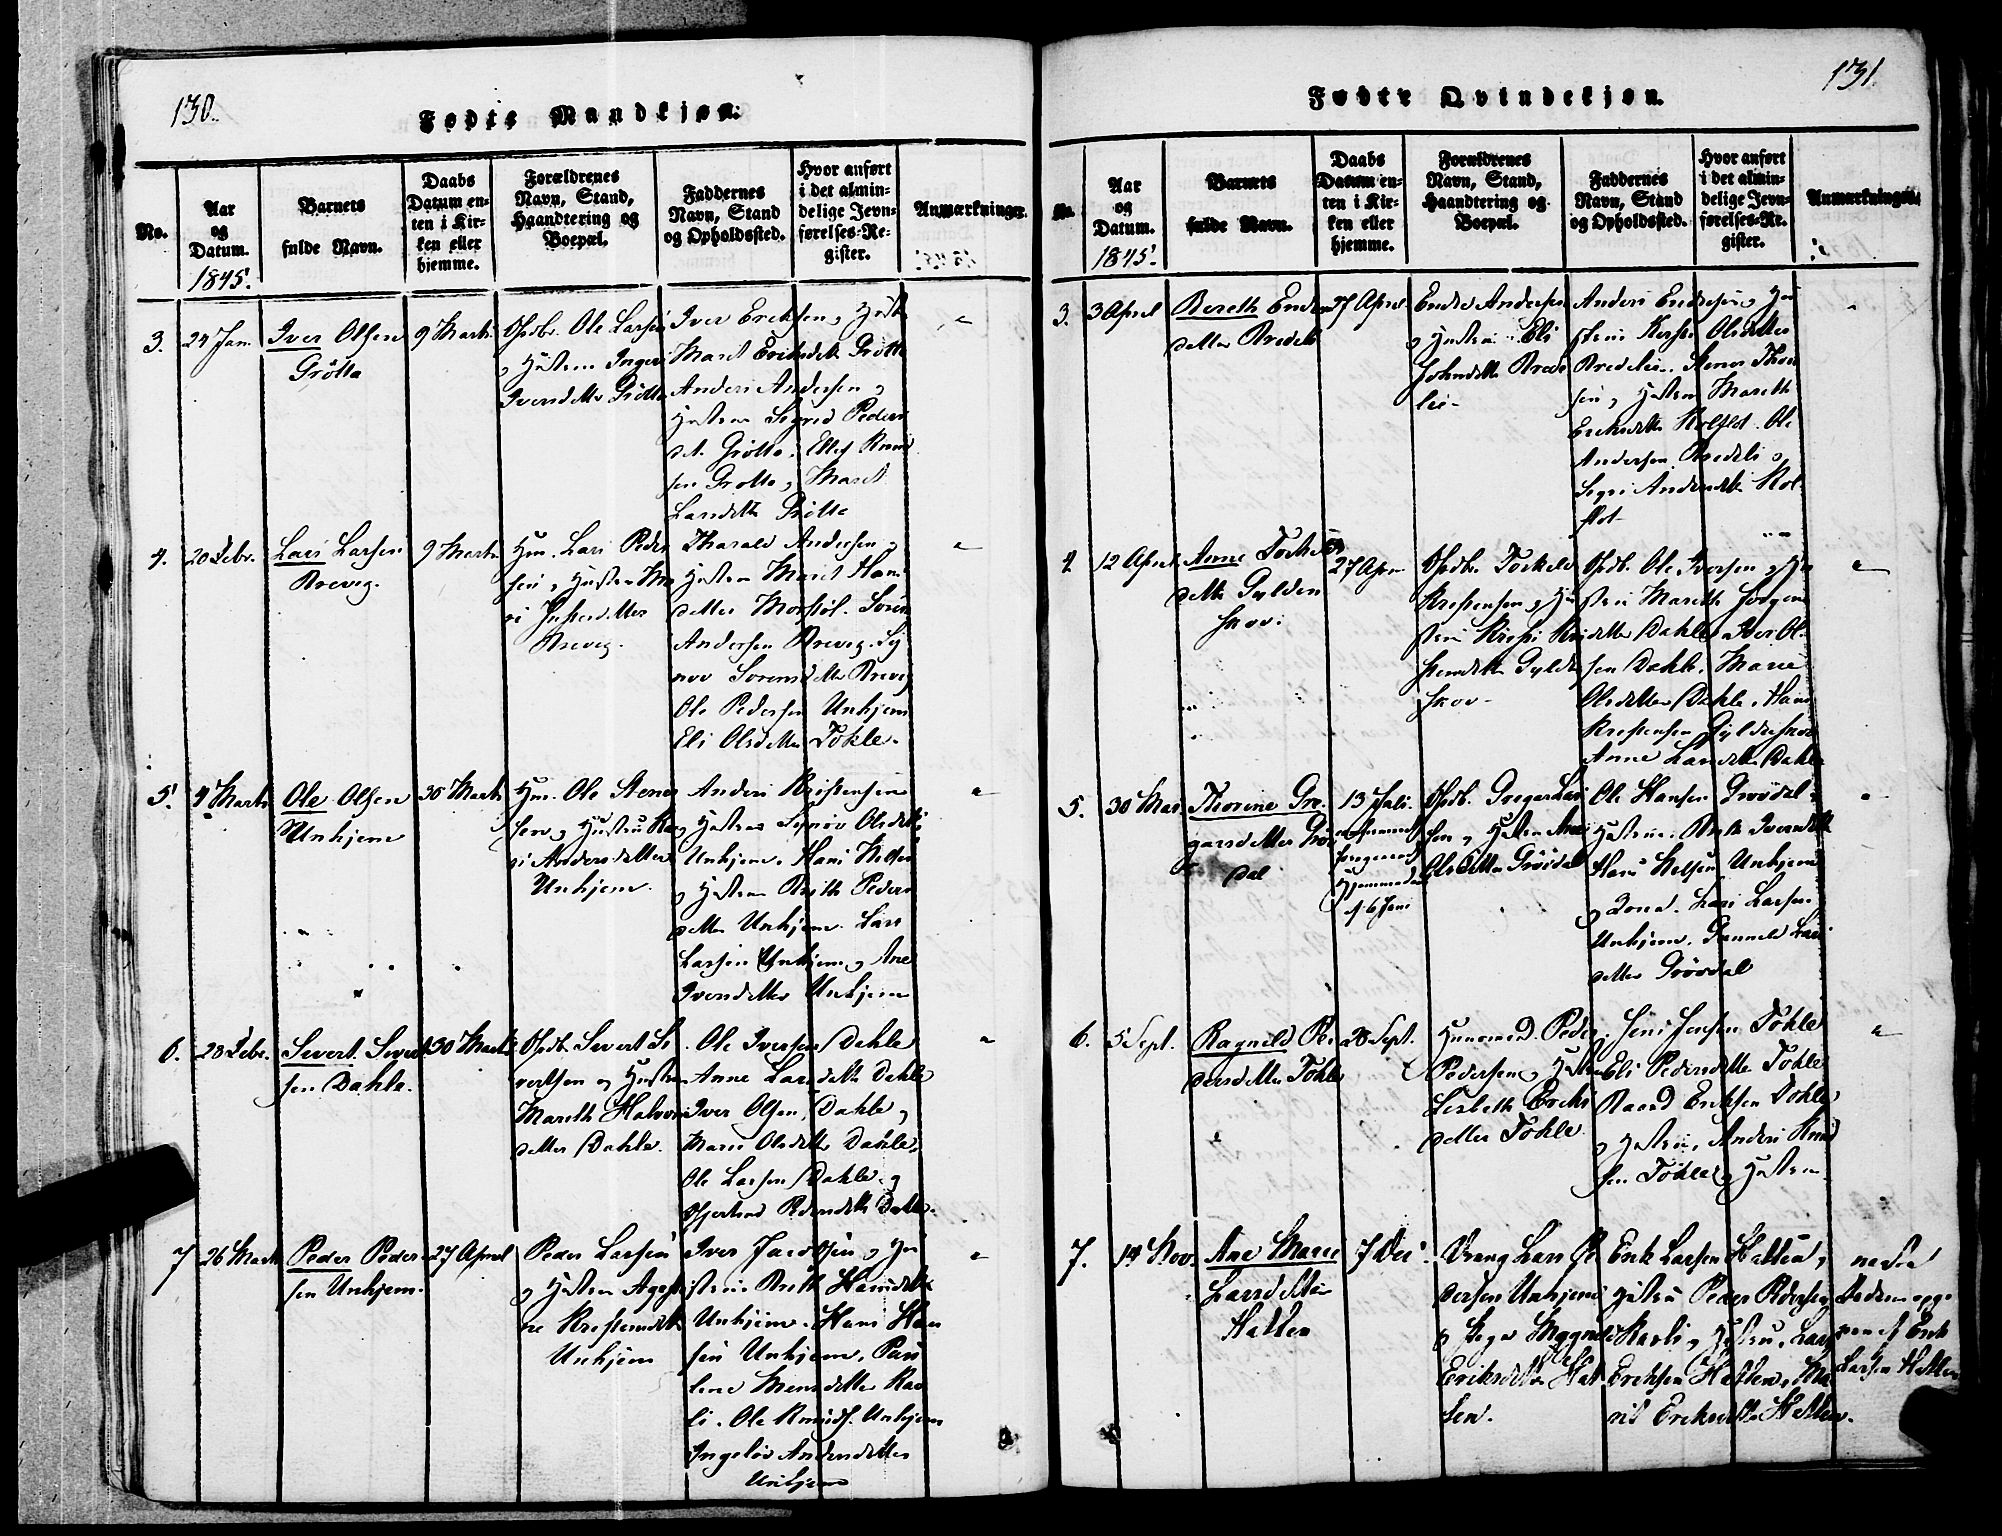 130.
Fødte Mandkjøn.
No.
Aar
og
Datum.
1845.
Barnets
fulde Navn.
Daabs
Datum en-
ten i Kir-
ken eller
hjemme.
Forældrenes
Navn, Stand,
Haandtering og
Boepæl.
Faddernes
Navn, Stand
og Opholdssted.
Hvor anført
i det almin-
delige Jevn-
førelses-Re-
gister.
Anmærkninger.
3.
24 Jan.
Iver Olsen
Grötta
9 Marts
Opdb. Ole Larsen
og Hustru Inger
Iversdatter Grötta
Iver Eriksen og
Marit Eriksdtr Grötte
Anders Andersen og
Hustrue Sigrid Peders
dt. Grötta. Ellef Knud
sen Grötta og Marit
Larsdtter Grötta
4.
20 Febr.
Lars Larsen
Brevig.
9 Marts
Hm. Lars Peder
sen og Hustru Ma
ri
Brevig.
Tharald Andersen og
Hustrue Marit Hans
datter Morstöl. Sören
Andersen Brevig. Sy
nov Sörensdatter Brevig
Ole Pedersen Unhjem
Eli Olsdatter Tokle.
5.
4 Marts
Ole Olsen
Unhjem
30 Marts
Hm. Ole Stener
sen og Hustru Ka
ri Andersdatter
Unhjem.
Anders Kristensen
og Hustru Synöv Olsdatter
Unhjem. Hans Nelsen
og Hustrue Brith Peders
datter Unhjem. Lars
Larsen Unhjem og Ane
Iversdatter Unhjem
6.
28 Febr.
Sivert Sivert
sen Dahle.
30 Marts
Opdb. Sivert Si
vertsen og Hustru
Mareth Halvors
datter Dahle.
Ole Iversen Dahle
Anne Larsdatter Dahle
Iver Olsen Dahle og
Marie Olsdatter Dahle.
Ole Larsen Dahle og
Gjertrud Pedersdatter Dahle.
7
26 Marts
Peder Peder
sen Unhjem.
27 April
Peder Larsen
og Hustrue
ne Kristensdatter
Unhjem
Iver Jacobsen og Hu
strue Brith Hansdatter
Unhjem. Hans Han
sen Unhjem. Pau
line Monsdatter Rav
li. Ole Knuds. Unhjem
Ingeløv Andersdatter
Unhjem
131.
Fødte Qvindekjøn.
No.
Aar
og
Datum.
1845.
Barnets
fulde Navn.
Daabs
Datum en-
ten i Kir-
ken eller
hjemme.
Forældrenes
Navn, Stand,
Haandtering og
Boepæl.
Faddernes
Navn, Stand
og Opholdssted.
Hvor anført
i det almin-
delige Jevn-
førelses-Re-
gister.
Anmærkninger.
3.
3 April
Bereth Endres
datter Bredeli
27 April
Endre Andersen
og Hustrue Eli
Johnsdatter Brede
lie.
Anders Endresen og Hu
strue Olsdatter
Bredelie. Stener Thor
sen og Hustrue Mareth
Eriksdatter Kolflot. Ole
Andersen Bredeli og
Segri Andersdatter Kol
flot
4.
12 April
Anne Torkels
datter Gylden
skov.
27 April
Opdb. Torkeld
Kristensen og Hu
strue Kri
stensdatter Gylden
skov.
Opdb. Ole Iversen og Hu
strue Mareth Jørgens
datter Dahle. Iver Ol
sen Dahle. Marie
Olsdatter Dahle. Hans
Kristensen Gyldenskov
Anne Larsdatter Dahle
5.
30 Mar.
Thorine Gre
gersdatter Grö
dal
13 Juli.
Hjemmedaab
af 6 Juni
Opdb. Greger Lar
sen og Hustrue Ane
Olsdatter Grödal
Ole Hansen Grödal og
Hustrue Brite Iversdatter
Hans Nelsen Unhjem
og Kone. Lars Larsen
Unhjem. Gunnild Lars
datter Grödal
6.
5 Sept.
Ragneld Pe
dersdatter Tokle
28 Sept.
Huusmd. Peder
Pedersen og Hustru
Lisbeth Eriks
datter Tokle.
Jens Jensen Tokle
Eli Pedersdatter Tokle
Raand Eriksen Tokle
og Hustrue. Anders Knud
sen Tokle og Hustrue.
7.
14 Nov.
Ane Marie
Larsdatter
Hatten
7 Dec.
Dreng Lars Pe
dersen Unhjem
og Pige
Eriksdatter Hat
ten.
Erik Larsen Hatten og
Hustru Peder Pedersen
Ravli og Hustru. Lars
Eriksen Hatten. Ma
rit Eriksdatter Hatten.
Larsen Hatten